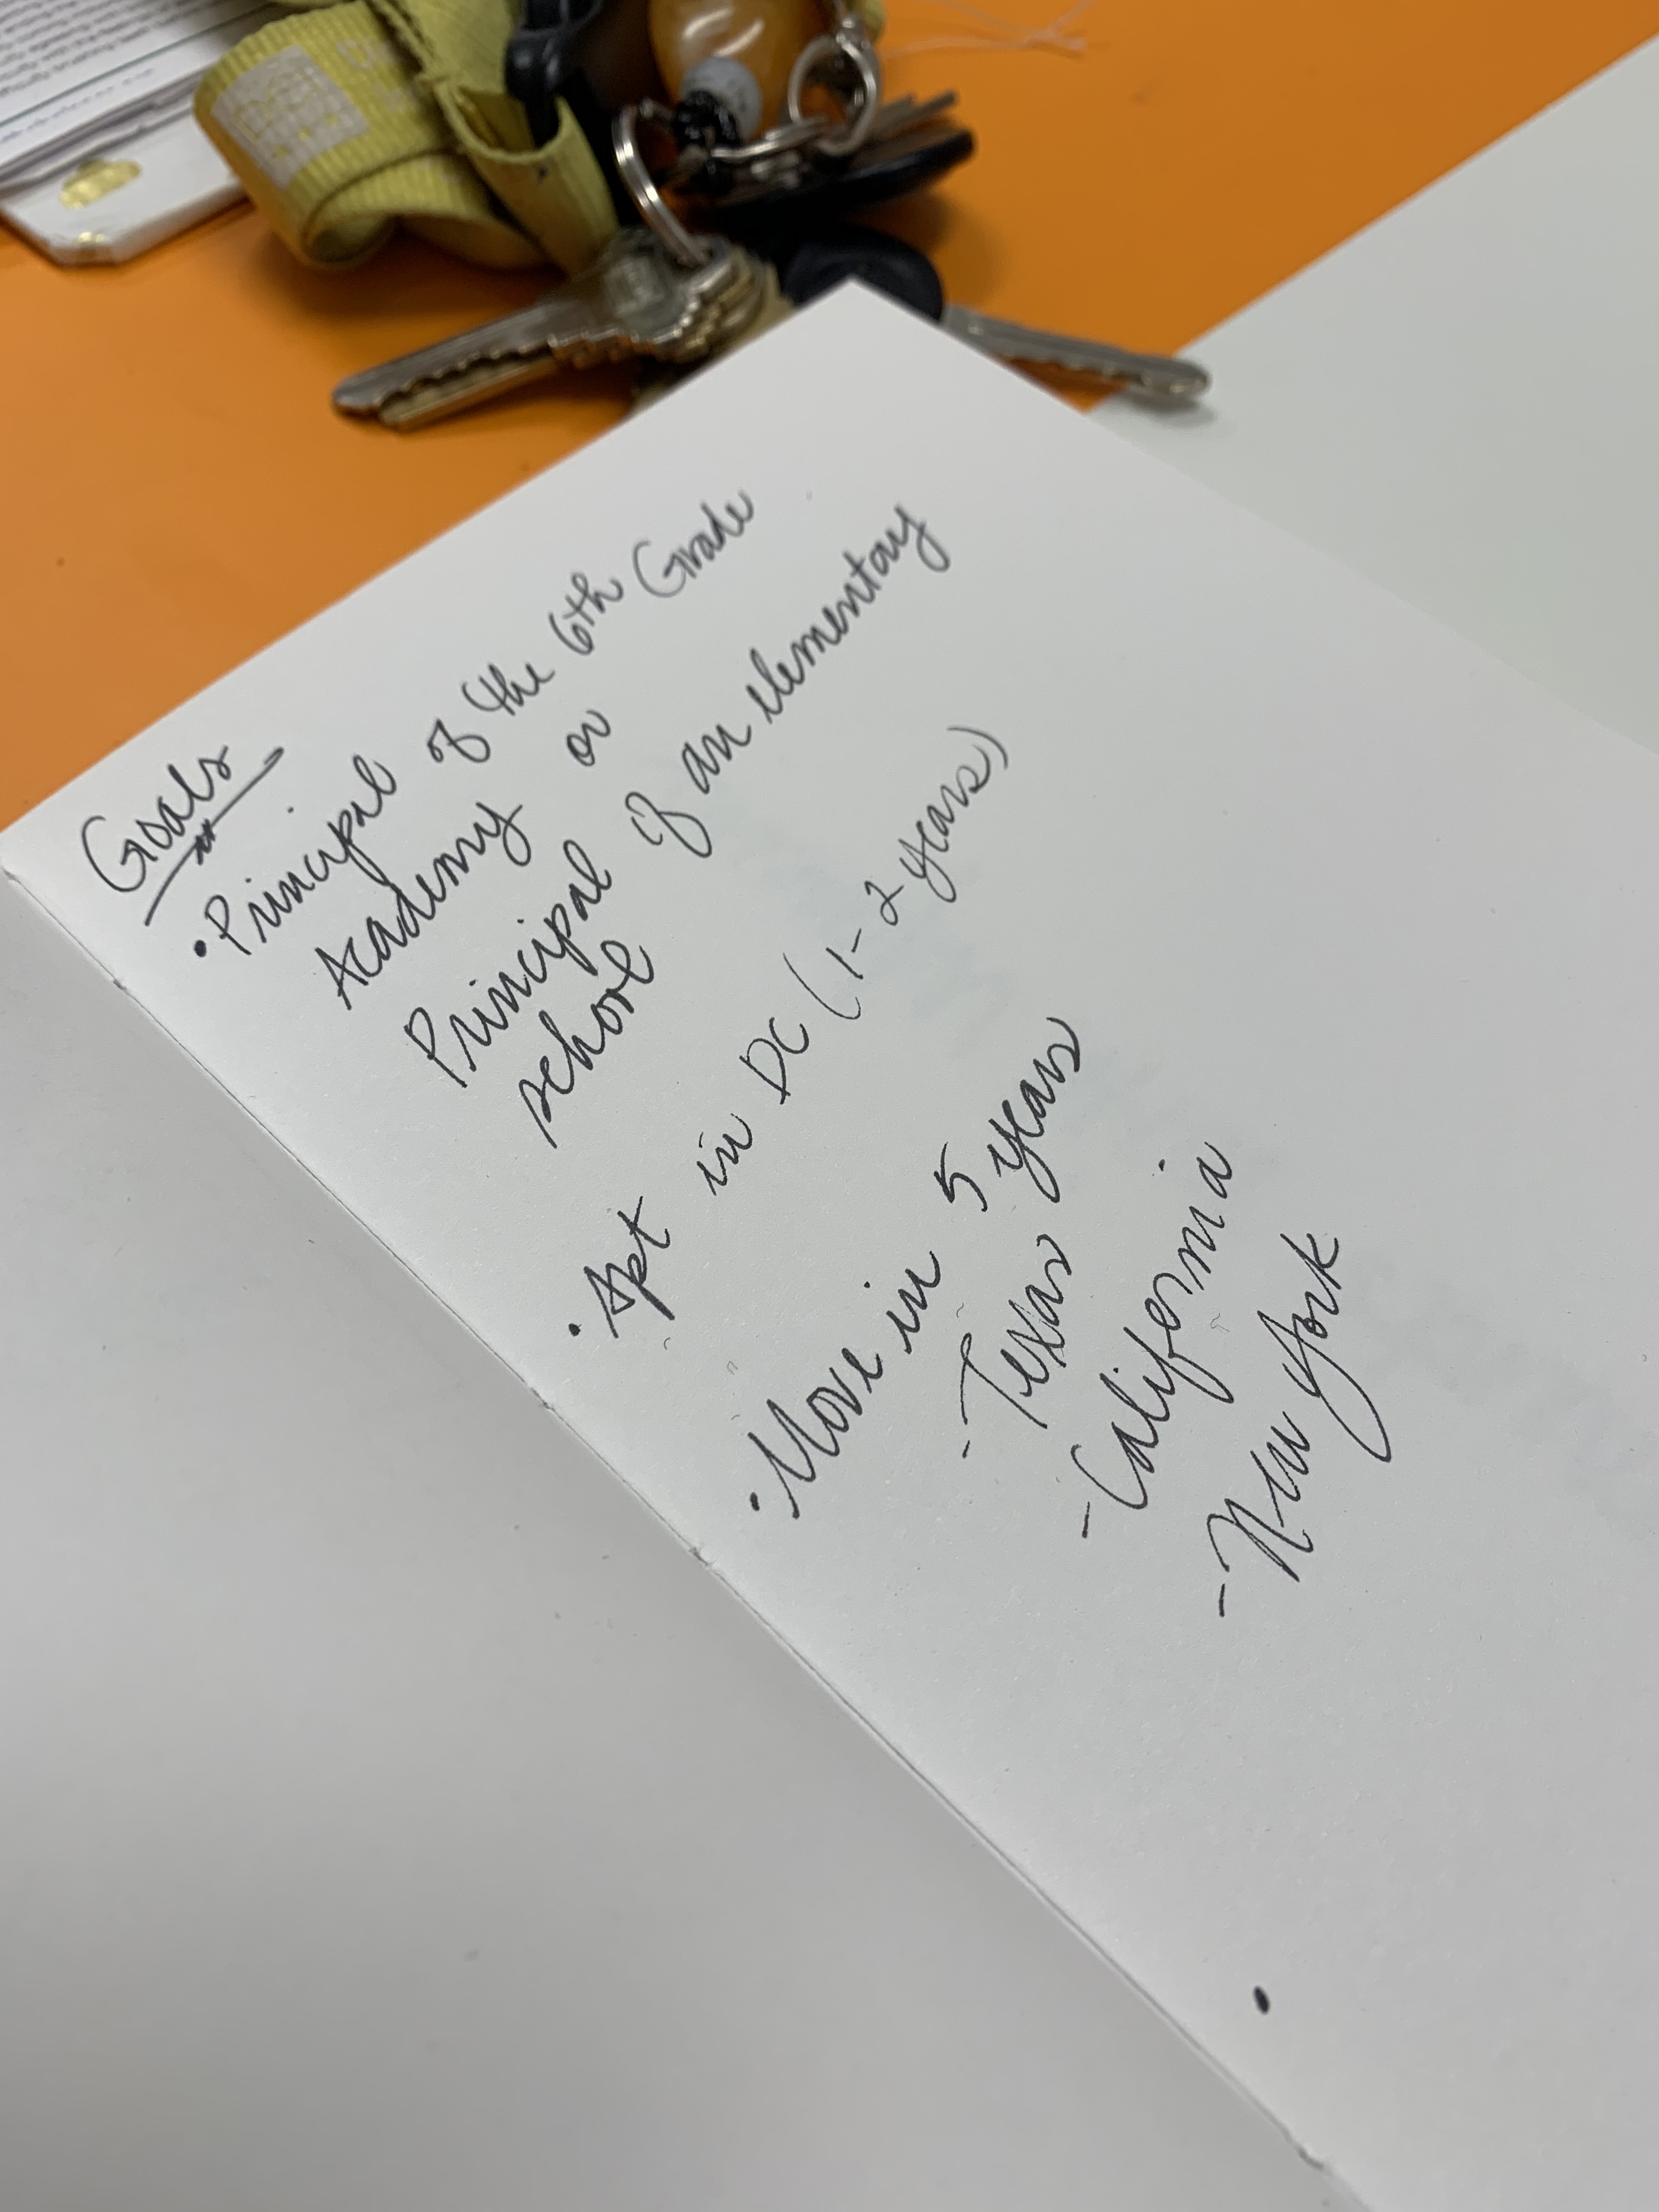 Goals
• Principal of the 6th Grade
Academy or
Principal of an elementary
school
• Apt in DC (1-2 years)
• Move in 5 years
- Texas
- California
- New York
•